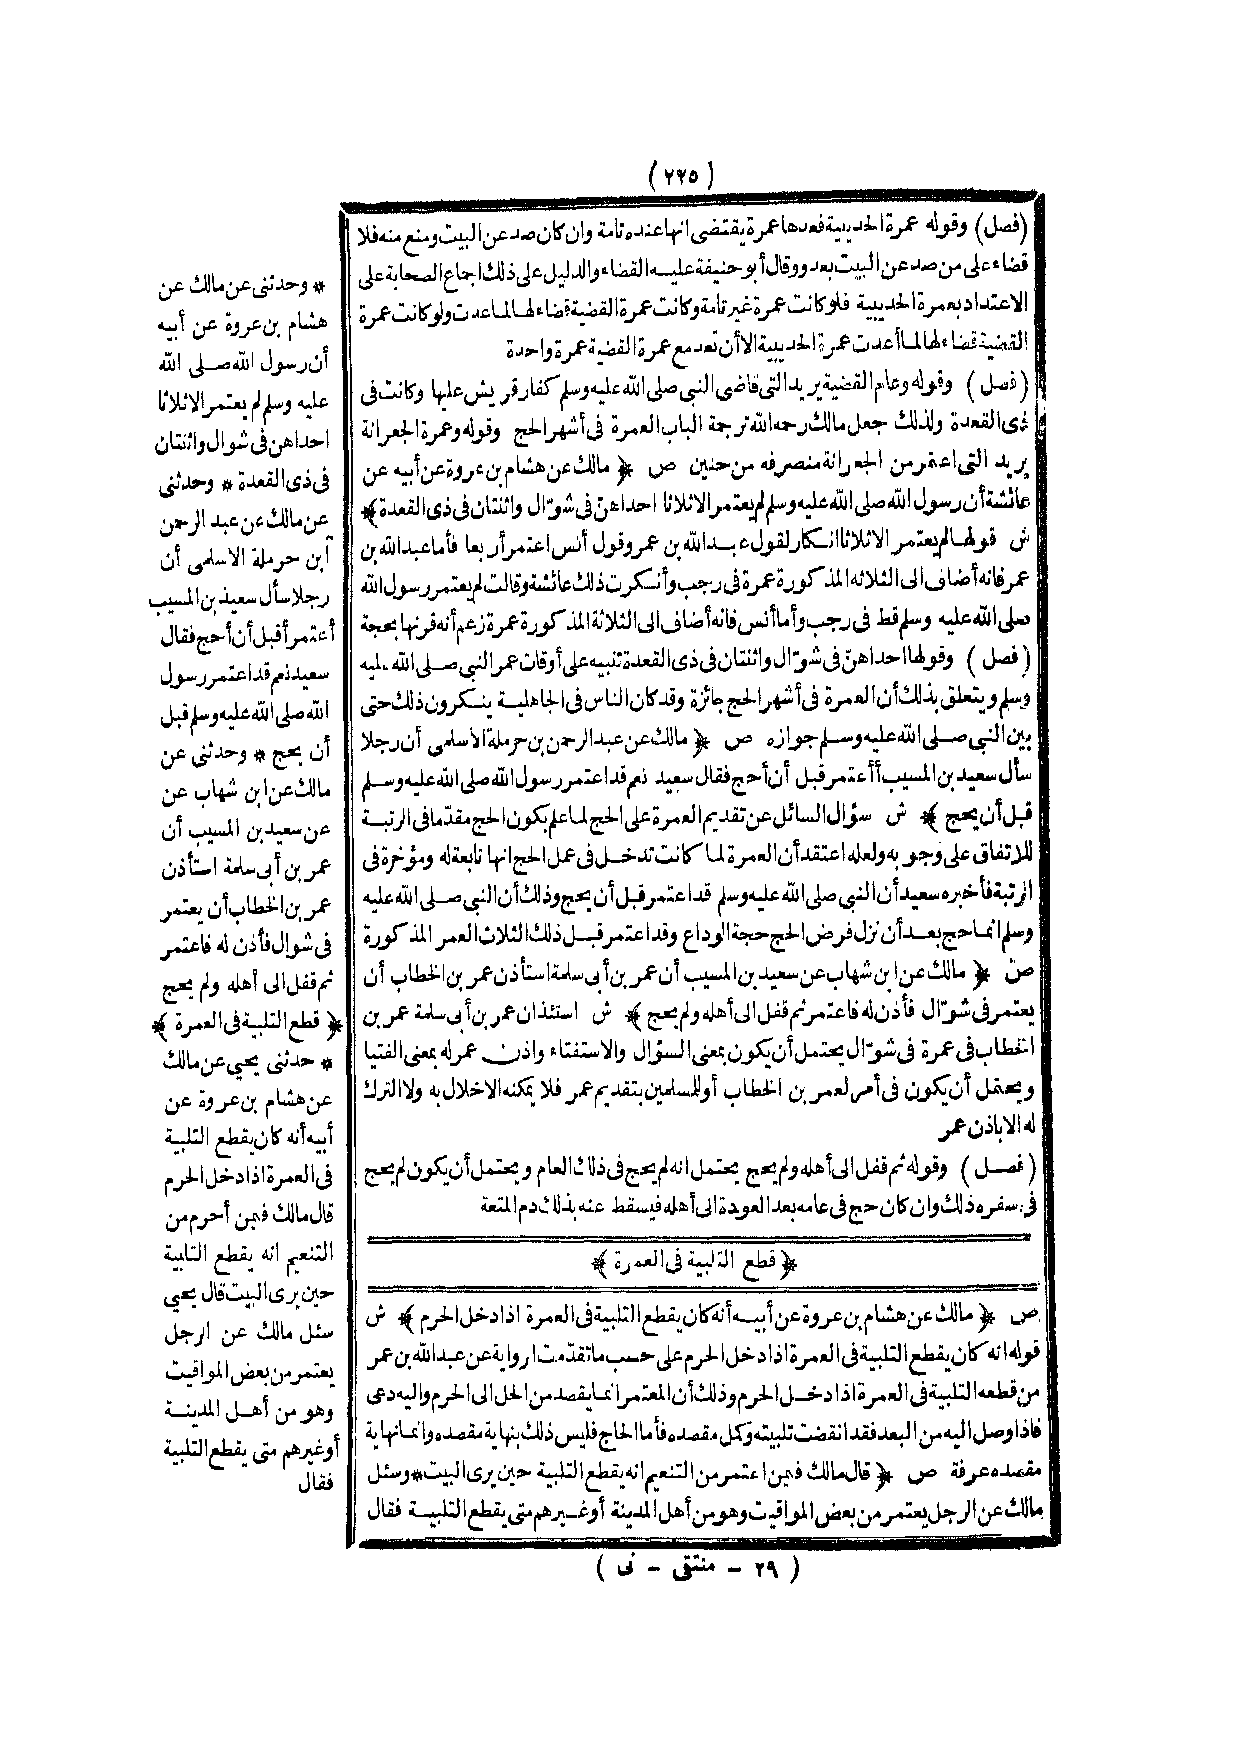 (٢٢٥)
(فصل) وقوله عمرة الحديبية فعدها عمرة يقتضى انها عنده تامة وان كان صد عن البيت ومنع منه فلا
قضاء على من صد عن البيت بعدو وقال أبو حنيفة عليه القضاء والدليل على ذلك اجماع الصحابة على
الاعتداد بعمرة الحديبية فلو كانت عمرة غير تامة وكانت عمرة القضية قضاء لها لما عدت ولو كانت عمرة
القضية قضاء لها لما أعدت عمرة الحديبية الا أن تعد مع عمرة القضية عمرة واحدة
(فصل) وقوله وعام القضية يريد التى قاضى النبي صلى الله عليه وسلم كفار قريش عليها وكانت فى
ذى القعدة ولذلك جعل مالك رحمه الله ترجمة الباب العمرة فى أشهر الحج وقوله وعمرة الجعرانة
يريد التى اعتمر من الجعرانة منصرفه من حنين ص ﴿ مالك عن هشام بن عروة عن أبيه عن
عائشة أن رسول الله صلى الله عليه وسلم لم يعتمر الا ثلاثا احداهن فى شوّال واثنتان فى ذى القعدة ﴾
ش قولها لم يعتمر الا ثلاثا انكار لقول عبد الله بن عمر وقول أنس اعتمر أربعا فأما عبد الله بن
عمر فانه أضاف الى الثلاثه المذكورة عمرة فى رجب وأنكرت ذلك عائشة وقالت لم يعتمر رسول الله
صلى الله عليه وسلم قط فى رجب وأما أنس فانه أضاف الى الثلاثة المذكورة عمرة زعم أنه قرنها بحجة
(فصل) وقولها احداهنّ فى شوّال واثنتان فى ذى القعدة تنبيه على أوقات عمر النبي صلى الله عليه
وسلم ويتعلق بذلك أن العمرة فى أشهر الحج جائزة وقد كان الناس فى الجاهلية ينكرون ذلك حتى
بين النبي صلى الله عليه وسلم جوازه ص ﴿ مالك عن عبد الرحمن بن حرملة الأسلمى أن رجلا
سأل سعيد بن المسيب أأعتمر قبل أن أحج فقال سعيد نعم قد اعتمر رسول الله صلى الله عليه وسلم
قبل أن يحج ﴾ ش سؤال السائل عن تقديم العمرة على الحج لما علم بكون الحج مقدما فى الرتبة
للاتفاق على وجوبه ولعله اعتقد أن العمرة لما كانت تدخل فى عمل الحج انها تابعة له ومؤخرة فى
الرتبة فأخبره سعيد أن النبي صلى الله عليه وسلم قد اعتمر قبل أن يحج وذلك أن النبي صلى الله عليه
وسلم انما حج بعد أن نزل فرض الحج حجة الوداع وقد اعتمر قبل ذلك الثلاث العمر المذكورة
ص ﴿ مالك عن ابن شهاب عن سعيد بن المسيب أن عمر بن أبى سلمة استأذن عمر بن الخطاب أن
يعتمر فى شوّال فأذن له فاعتمر ثم قفل الى أهله ولم يحج ﴾ ش استئذان عمر بن أبى سلمة عمر بن
الخطاب فى عمرة فى شوّال يحتمل أن يكون بمعنى السؤال والاستفتاء واذن عمر له بمعنى الفتيا
ويحتمل أن يكون فى أمر لعمر بن الخطاب أو للمسلمين بتقديم عمر فلا يمكنه الاخلال به ولا الترك
له الا باذن عمر
(فصل) وقوله ثم قفل الى أهله ولم يحج يحتمل انه لم يحج فى ذلك العام ويحتمل أن يكون لم يحج
فى سفره ذلك وان كان حج فى عامه بعد العودة الى أهله فيسقط عنه بذلك دم المتعة
﴿ قطع التلبية فى العمرة ﴾
ص ﴿ مالك عن هشام بن عروة عن أبيه أنه كان يقطع التلبية فى العمرة اذا دخل الحرم ﴾ ش
قوله انه كان يقطع التلبية فى العمرة اذا دخل الحرم على حسب ما تقدمت الرواية عن عبد الله بن عمر
من قطعه التلبية فى العمرة اذا دخل الحرم وذلك أن المعتمر انما يقصد من الحل الى الحرم واليه دعى
فاذا وصل اليه من البعد فقد انقضت تلبيته وكل مقصده فأما الحاج فليس ذلك بنهاية مقصده وانما نهاية
مقصده عرفة ص ﴿ قال مالك فيمن اعتمر من التنعيم انه يقطع التلبية حين يرى البيت * وسئل
مالك عن الرجل يعتمر من بعض المواقيت وهو من أهل المدينة أو غيرهم متى يقطع التلبية فقال
(٢٩ – منتقى – نى)
* وحدثنى عن مالك عن
هشام بن عروة عن أبيه
أن رسول الله صلى الله
عليه وسلم لم يعتمر الا ثلاثا
احداهن فى شوال واثنتان
فى ذى القعدة * وحدثنى
عن مالك عن عبد الرحمن
ابن حرملة الاسلمى أن
رجلا سأل سعيد بن المسيب
أعتمر أقبل أن أحج فقال
سعيد نعم قد اعتمر رسول
الله صلى الله عليه وسلم قبل
أن يحج * وحدثنى عن
مالك عن ابن شهاب عن
عن سعيد بن المسيب أن
عمر بن أبى سلمة استأذن
عمر بن الخطاب أن يعتمر
فى شوال فأذن له فاعتمر
ثم قفل الى أهله ولم يحج
﴿ قطع التلبية فى العمرة ﴾
* حدثنى يحيى عن مالك
عن هشام بن عروة عن
أبيه أنه كان يقطع التلبية
فى العمرة اذا دخل الحرم
قال مالك فيمن أحرم من
التنعيم انه يقطع التلبية
حين يرى البيت قال يحيى
سئل مالك عن الرجل
يعتمر من بعض المواقيت
وهو من أهل المدينة
أو غيرهم متى يقطع التلبية
فقال